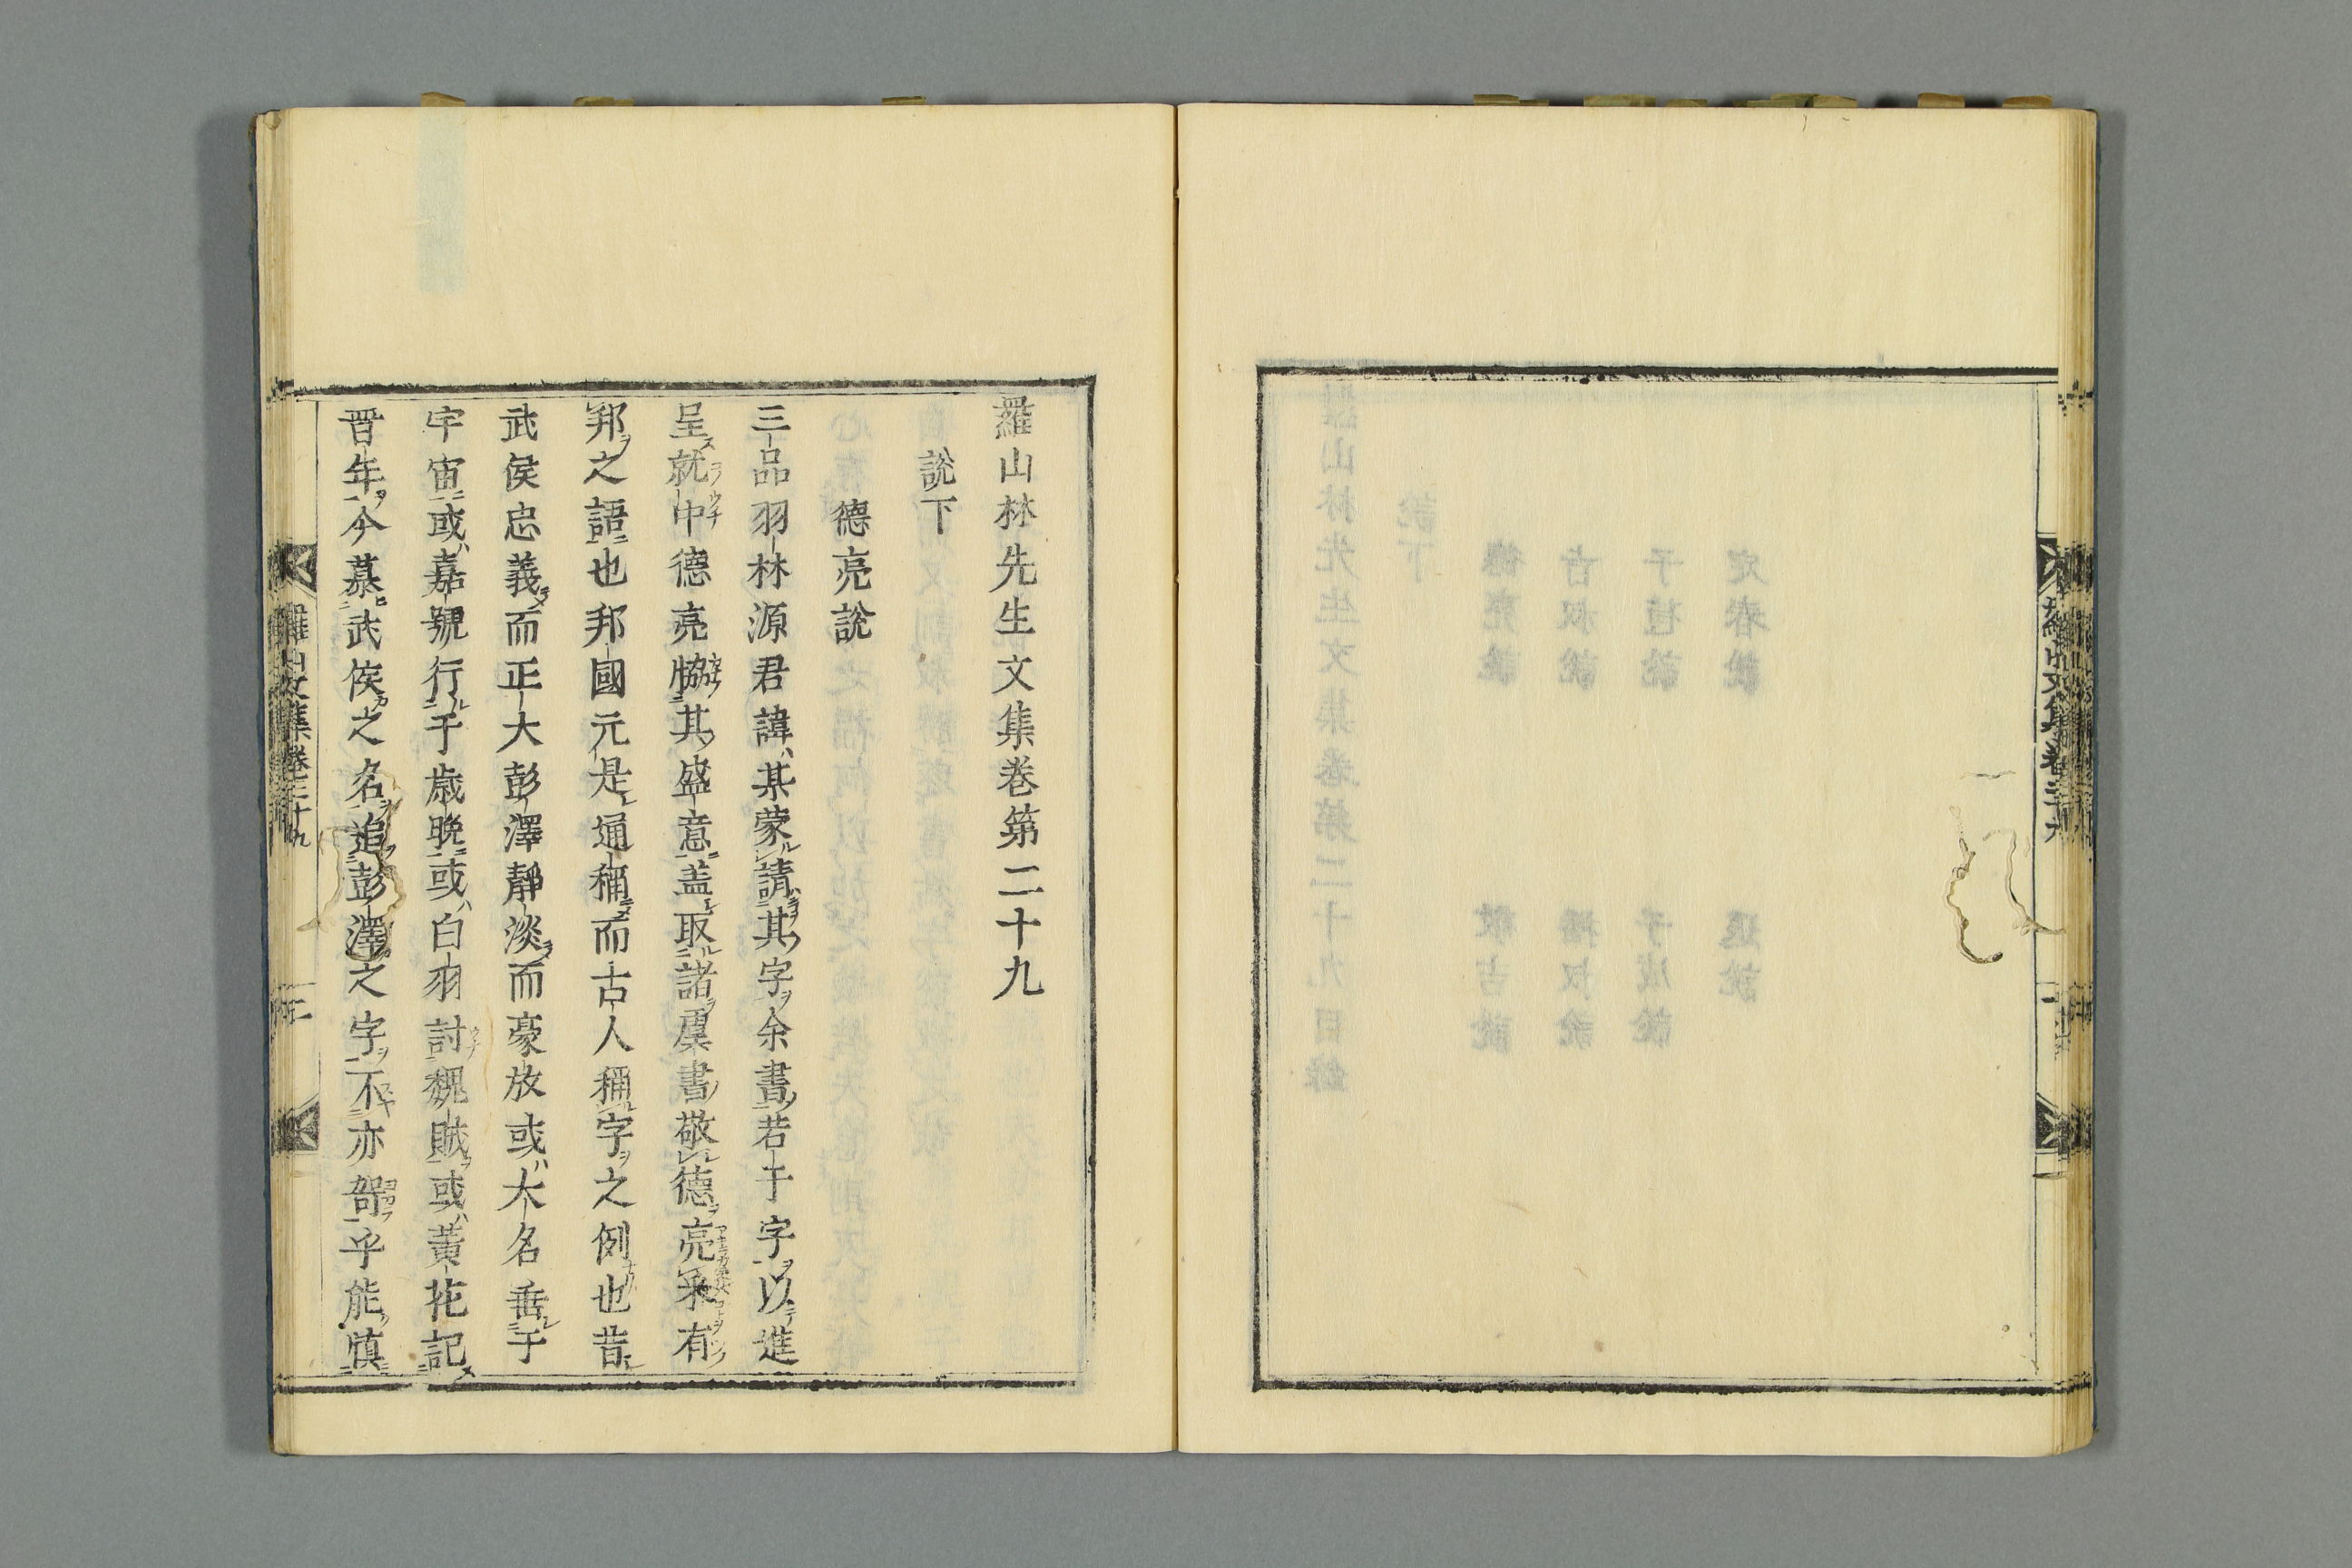 羅山林先生文集卷第二十九
說下
德亮說
三品羽林源君諱某蒙請其字余書若干字以進
呈就中德亮恊其盛意盖取諸虞書敬德亮采有
邦之語也邦國元是通稱而古人稱字之例也昔
武侯忠義而正大彭澤靜淡而豪放或大名垂于
宇宙或嘉號行于歲晚或白羽討魏賊或黃花記
晋年今慕武侯之名追彭澤之字不亦智乎能愼
羅山文集卷二十九